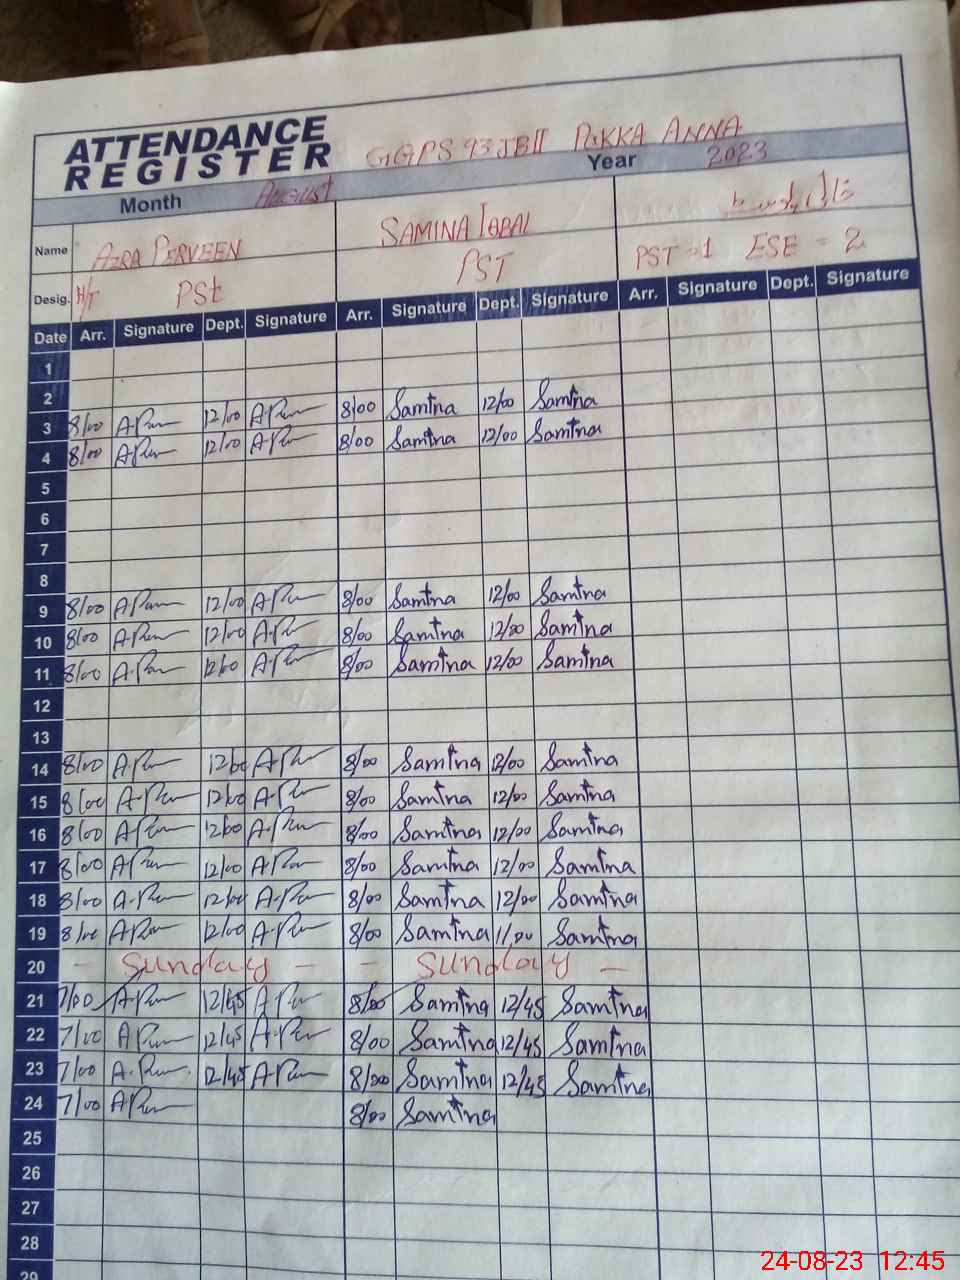 ATTENDANCE
REGISTER
GGPS 93 JB II PAKKA ANNA
Month August Year 2023
Name AZRA PERVEEN SAMINA IQBAL
Desig. H/T PSt PST PST = 1 ESE = 2
Date Arr. Signature Dept. Signature Arr. Signature Dept. Signature Arr. Signature Dept. Signature
1
2
3 8/00 12/00 8/00 Samina 12/00 Samina
4 8/00 12/00 8/00 Samina 12/00 Samina
5
6
7
8
9 8/00 12/00 8/00 Samina 12/00 Samina
10 8/00 12/00 8/00 Samina 12/00 Samina
11 8/00 12/00 8/00 Samina 12/00 Samina
12
13
14 8/00 12/00 8/00 Samina 12/00 Samina
15 8/00 12/00 8/00 Samina 12/00 Samina
16 8/00 12/00 8/00 Samina 12/00 Samina
17 8/00 12/00 8/00 Samina 12/00 Samina
18 8/00 12/00 8/00 Samina 12/00 Samina
19 8/00 12/00 8/00 Samina 11/00 Samina
20 - Sunday - - Sunday -
21 7/00 12/45 8/00 Samina 12/45 Samina
22 7/00 12/45 8/00 Samina 12/45 Samina
23 7/00 12/45 8/00 Samina 12/45 Samina
24 7/00 8/00 Samina
25
26
27
28
29
24-08-23 12:45